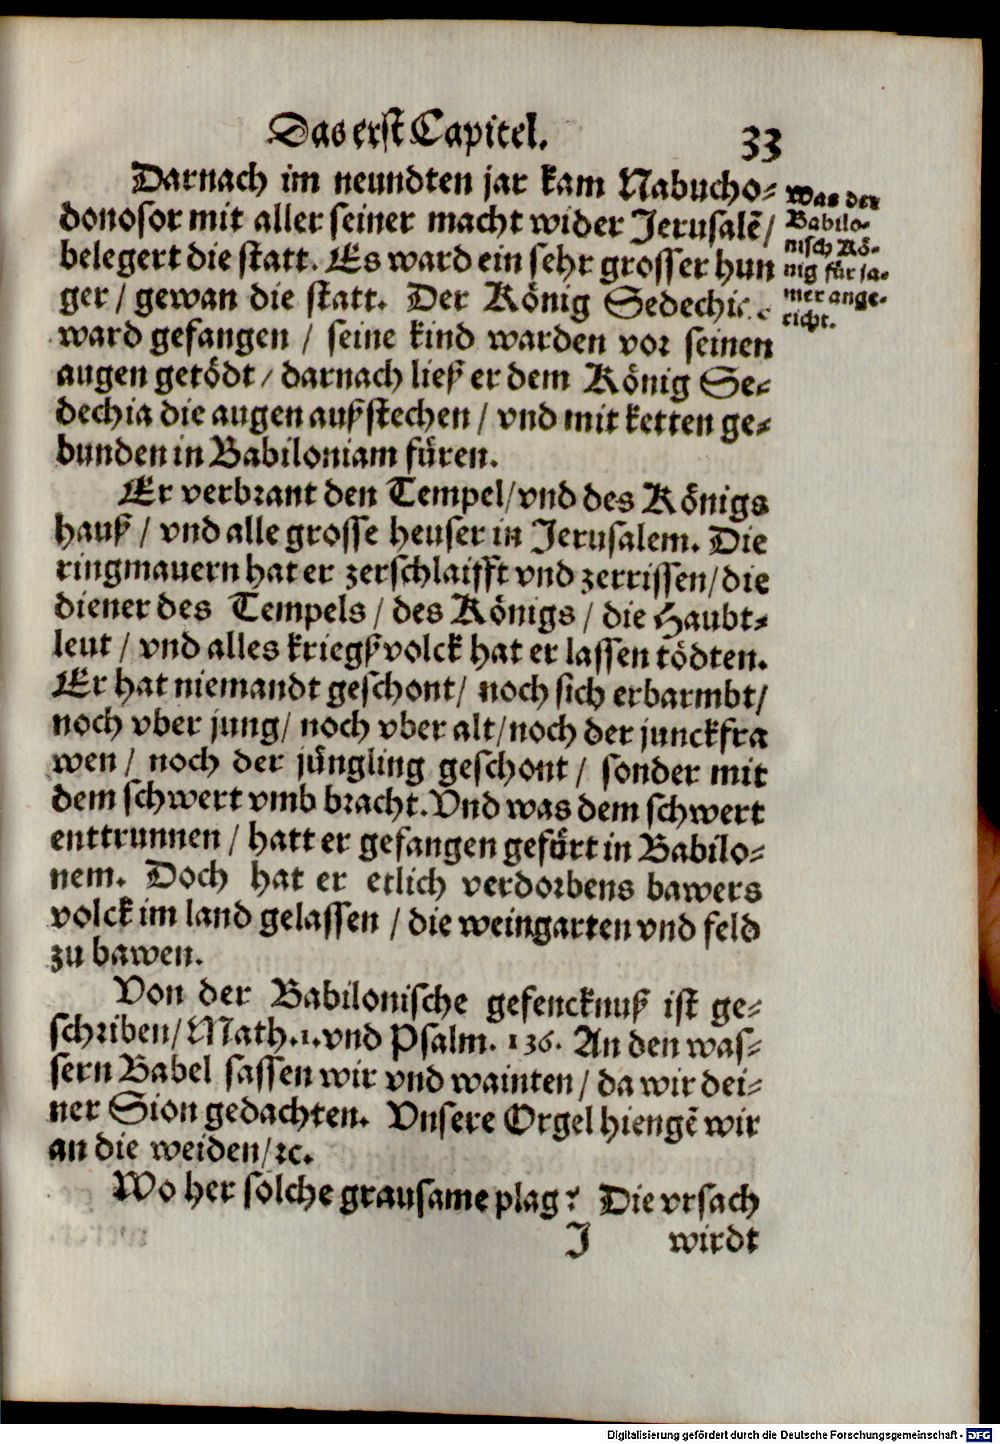 Das erst Capitel. 33
Darnach im neundten jar kam Nabucho-
donosor mit aller seiner macht wider Jerusalẽ/
belegert die statt. Es ward ein sehr grosser hun
ger / gewan die statt. Der König
ward gefangen / seine kind warden vor seinen
augen getödt / darnach ließ er dem König Se-
dechia die augen außstechen / vnd mit ketten ge-
bunden in Babiloniam füren.
Was der
Babilo-
nisch Kö-
nig für ja-
mer ange-
richt.
Er verbrant den Tempel/vnd des Königs
hauß / vnd alle grosse heuser in Jerusalem. Die
ringmauern hat er zerschlaifft vnd zerrissen/die
diener des Tempels / des Königs / die Haubt-
leut / vnd alles kriegßvolck hat er lassen tödten.
Er hat niemandt geschont/ noch sich erbarmbt/
noch vber jung/ noch vber alt/noch der junckfra
wen / noch der jüngling geschont / sonder mit
dem schwert vmb bracht. Vnd was dem schwert
enttrunnen / hatt er gefangen gefürt in Babilo-
nem. Doch hat er etlich verdorbens bawers
volck im land gelassen / die weingarten vnd feld
zu bawen.
Von der Babilonische gefencknuß ist ge-
schriben/Math.1.vnd Psalm. 136. An den was-
sern Babel sassen wir vnd wainten / da wir dei-
ner Sion gedachten. Vnsere Orgel hiengẽ wir
an die weiden/ꝛc.
Wo her solche grausame plag? Die vrsach
J wirdt
Digitalisierung gefördert durch die Deutsche Forschungsgemeinschaft - DFG